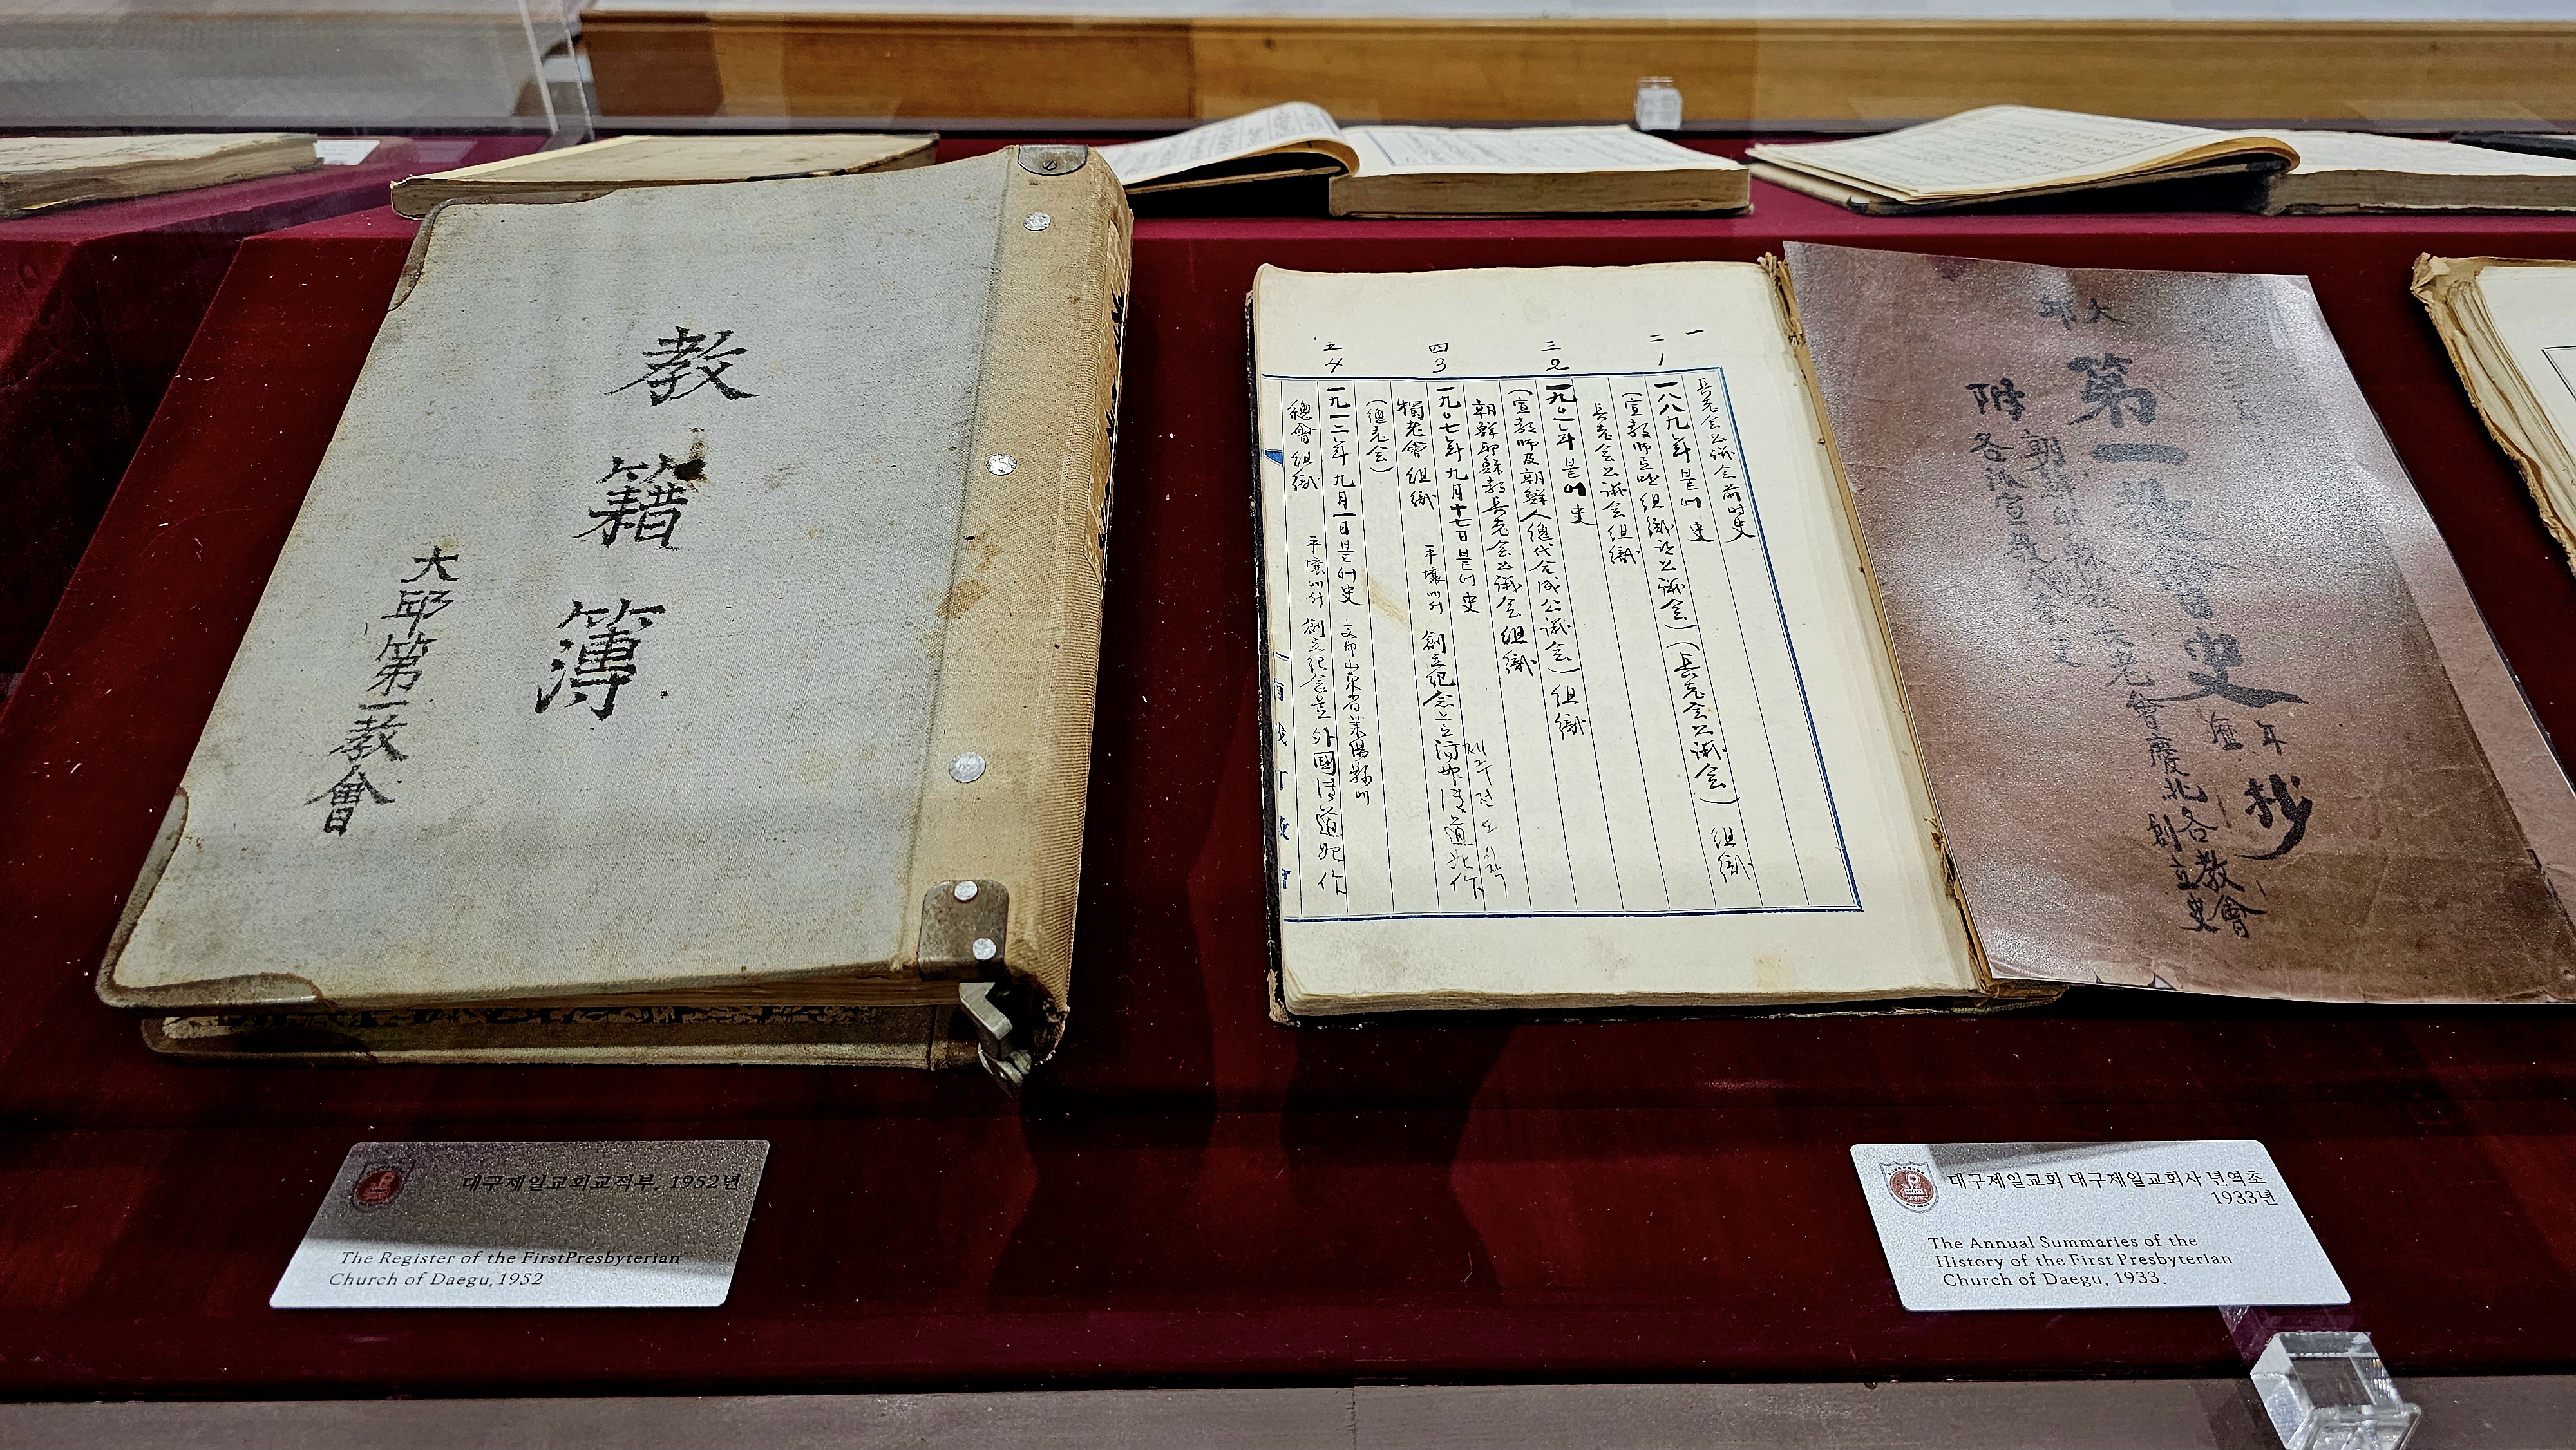 教籍簿
大邱第一教會
一
二 1
三 2
四 3
五 4
長老会公議会前時史
一八八九年붙어 史
(宣教師 組織 公議会) (長老会公議会) 組織
長老会公議会組織
一九〇一年붙어 史
(宣教師及朝鮮人總代合成公議会) 組織
朝鮮耶穌教長老会公議会組織
一九〇七年九月十七日붙어 史
獨老會組織 平壤에서 創立紀念으로 제주전도시작
(總老会)
一九一二年九月一日붙어史 支那山東省萊陽縣에
總會組織 平壤에서 創立紀念으로 外國傳道 始作
大邱
第一教會史
年 抄
朝鮮耶穌教長老會慶北各教會創立史
附各派宣教 史
대구제일교회교적부, 1952년
The Register of the FirstPresbyterian
Church of Daegu, 1952
대구제일교회 대구제일교회사 년역초
1933년
The Annual Summaries of the
History of the First Presbyterian
Church of Daegu, 1933.